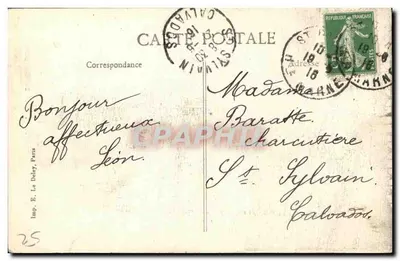 CARTE POSTALE
Correspondance
Bonjour
affectueux
Léon.
Madame
Baratte
charcutière
St. Sylvain
Calvados.
Imp. E. Le Deley, Paris
ST SYLVAIN
CALVADOS
MARNE
25